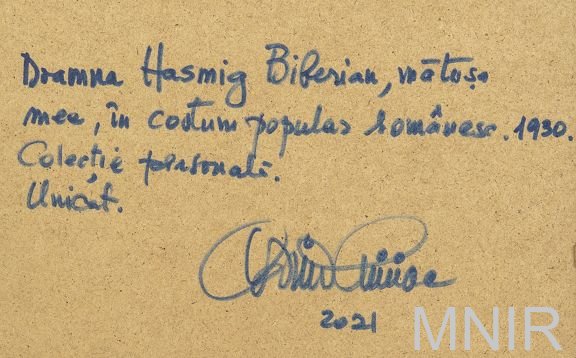 Doamna Hasmig Biberian, mătușa
mea, în costum popular românesc. 1930.
Colecție personală.
Unicat.
2021
MNIR